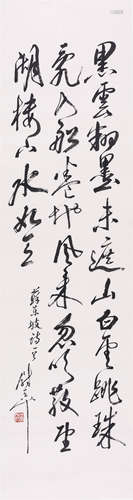 黑雲翻墨未遮山白雨跳珠
亂入船卷地風來忽吹散望
湖樓下水如天
蘇東坡詩一首